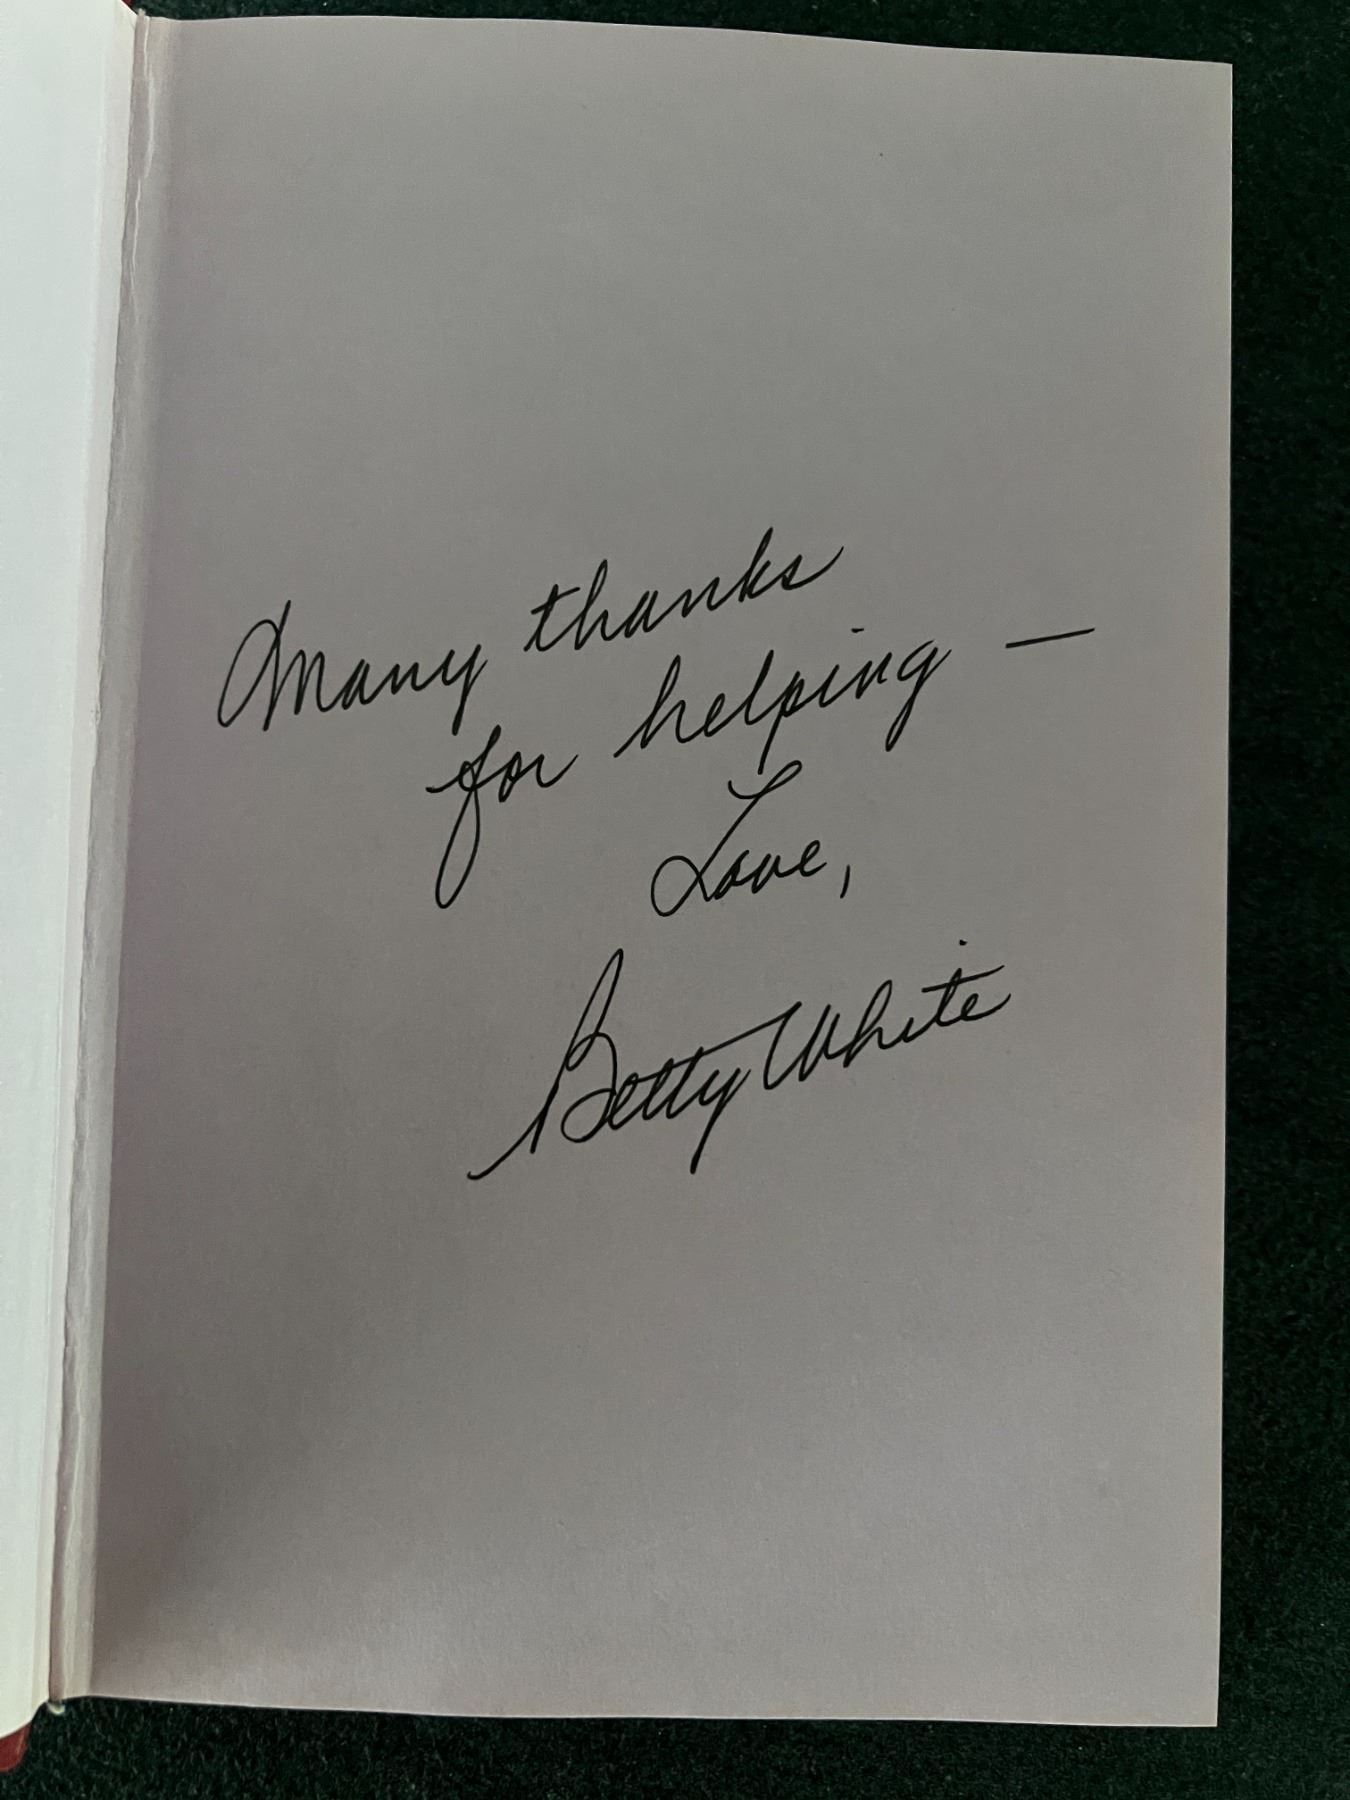 Many thanks
for helping —
Love,
Betty White